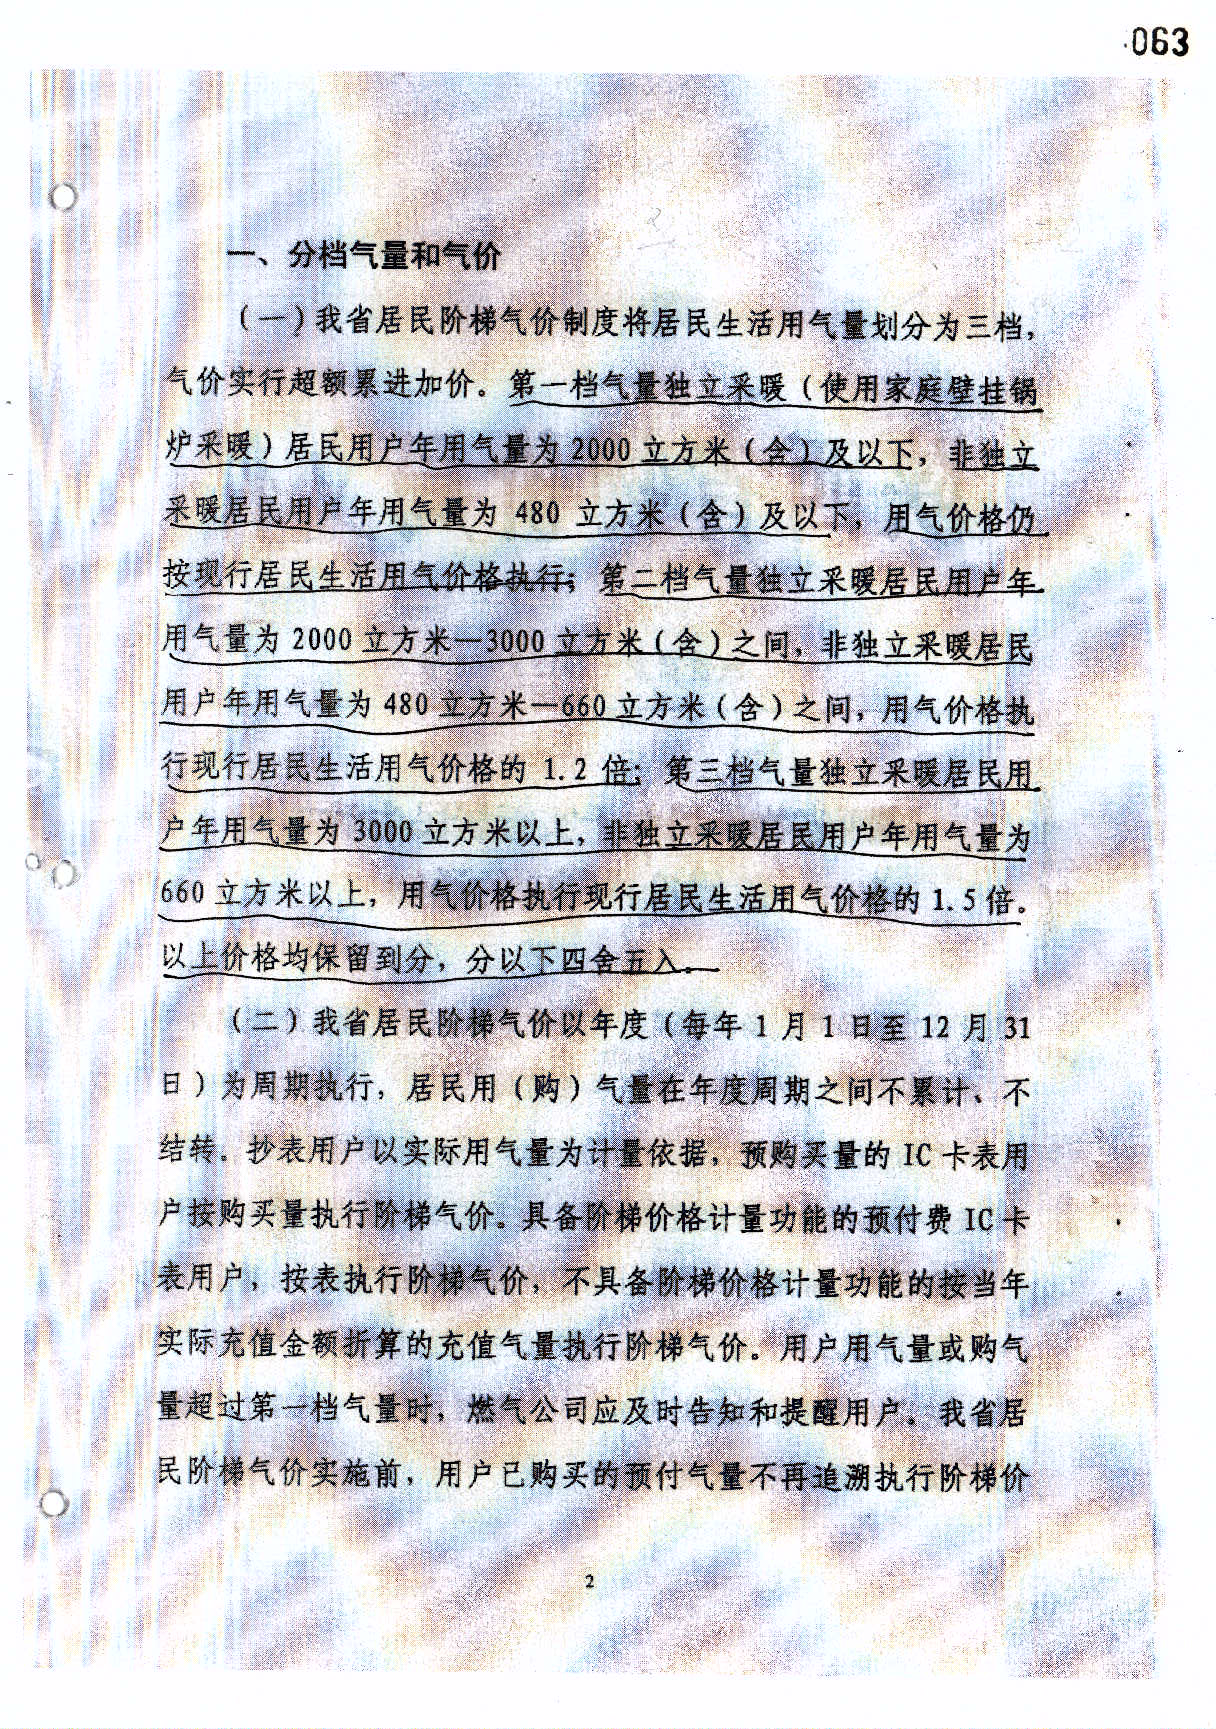 063
一、分档气量和气价
（一）我省居民阶梯气价制度将居民生活用气量划分为三档，
气价实行超额累进加价。第一档气量独立采暖（使用家庭壁挂锅
炉采暖）居民用户年用气量为 2000 立方米（含）及以下，非独立
采暖居民用户年用气量为 480 立方米（含）及以下，用气价格仍
按现行居民生活用气价格执行；第二档气量独立采暖居民用户年
用气量为 2000 立方米—3000 立方米（含）之间，非独立采暖居民
用户年用气量为 480 立方米—660 立方米（含）之间，用气价格执
行现行居民生活用气价格的 1.2 倍；第三档气量独立采暖居民用
户年用气量为 3000 立方米以上，非独立采暖居民用户年用气量为
660 立方米以上，用气价格执行现行居民生活用气价格的 1.5 倍。
以上价格均保留到分，分以下四舍五入。
（二）我省居民阶梯气价以年度（每年 1 月 1 日至 12 月 31
日）为周期执行，居民用（购）气量在年度周期之间不累计、不
结转。抄表用户以实际用气量为计量依据，预购买量的 IC 卡表用
户按购买量执行阶梯气价。具备阶梯价格计量功能的预付费 IC 卡
表用户，按表执行阶梯气价，不具备阶梯价格计量功能的按当年
实际充值金额折算的充值气量执行阶梯气价。用户用气量或购气
量超过第一档气量时，燃气公司应及时告知和提醒用户。我省居
民阶梯气价实施前，用户已购买的预付气量不再追溯执行阶梯价
2